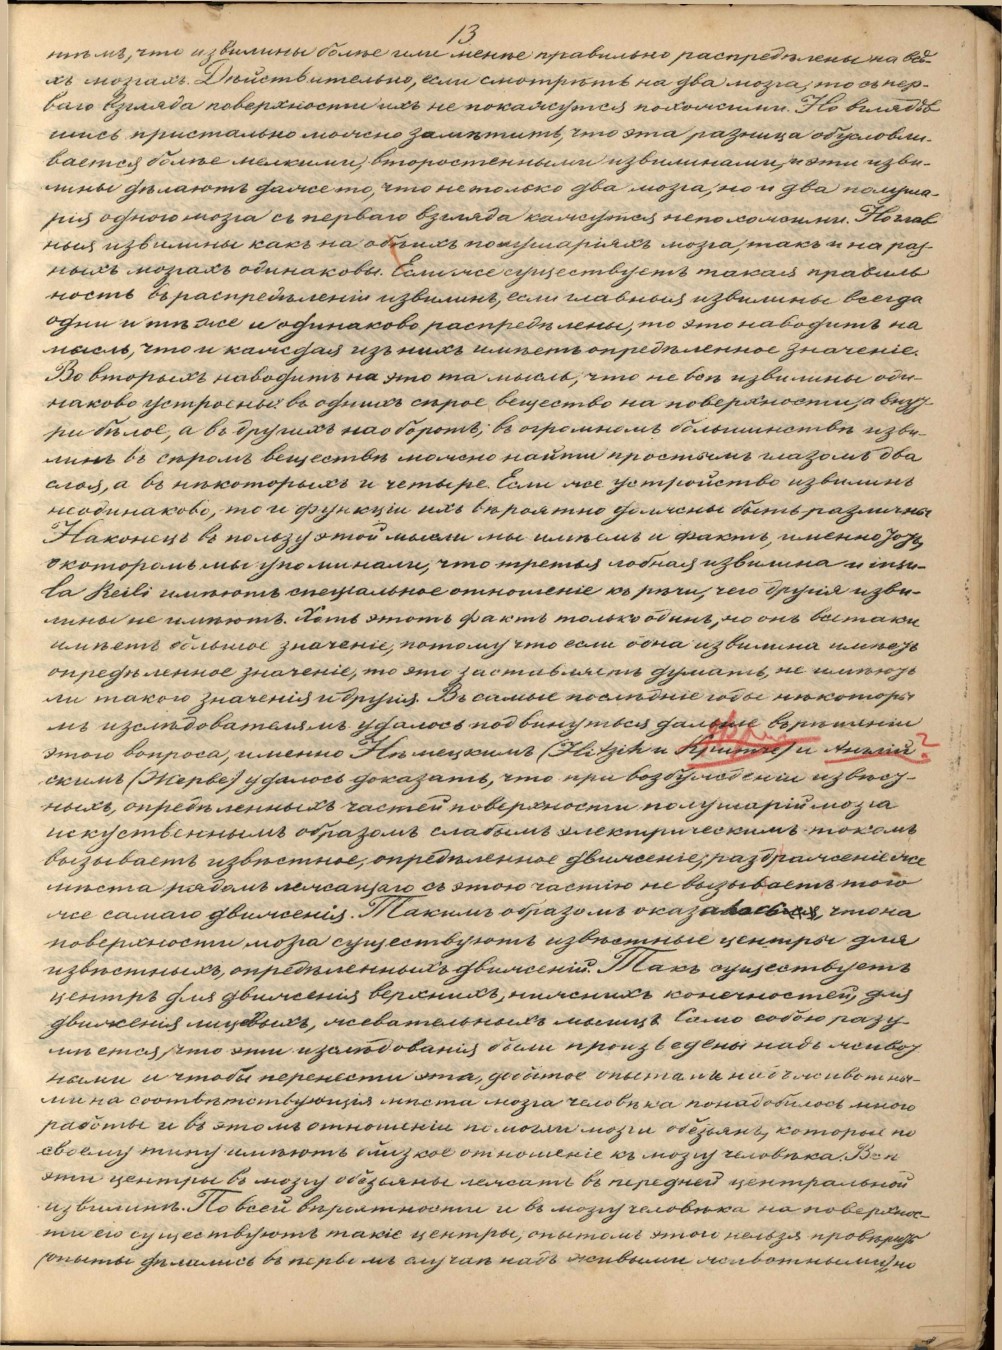 13
тѣмъ, что извилины болѣе или менѣе правильно распредѣлены на всѣ-
хъ мозгахъ. Дѣйствительно, если смотрѣть на два мозга, то съ пер-
ваго взгляда поверхности ихъ не покажутся похожими. Но вглядѣв
шись пристально можно замѣтить, что эта разница обусловли-
вается болѣе мелкими, второстепенными извилинами, и эти изви-
лины дѣлаютъ даже то, что не только два мозга, но и два полуша-
рія одного мозга съ перваго взгляда кажутся непохожими. Но глав
ныя извилины какъ на обоихъ полушаріяхъ мозга, такъ и на раз-
ныхъ мозгахъ одинаковы. Если же существуетъ такая правиль
ность въ распредѣленіи извилинъ, если главныя извилины всегда
одни и тѣ же и одинаково распредѣлены, то это наводитъ на
мысль, что и каждая изъ нихъ имѣетъ опредѣленное значеніе.
Во вторыхъ наводитъ на это та мысль, что не всѣ извилины оди-
наково устроены: въ однихъ сѣрое вещество на поверхности, а внут-
ри бѣлое, а въ другихъ наоборотъ; въ огромномъ большинствѣ изви-
линъ въ сѣромъ веществѣ можно найти простымъ глазомъ два
слоя, а въ нѣкоторыхъ и четыре. Если же устройство извилинъ
неодинаково, то и функціи ихъ вѣроятно должны быть различны
Наконецъ въ пользу этой мысли мы имѣемъ и фактъ, именно тотъ,
о которомъ мы упоминали, что третья лобная извилина и insu-
la Reili имѣютъ спеціальное отношеніе къ рѣчи, чего другія изви-
лины не имѣютъ. Хоть этотъ фактъ только одинъ, но онъ все таки
имѣетъ большое значеніе, потому что если одна извилина имѣетъ
опредѣленное значеніе, то это заставляетъ думать, не имѣютъ
ли такого значенія и другія. Въ самые послѣдніе годы нѣкоторы
мъ изслѣдователямъ удалось подвинуться дальше въ рѣшеніи
этого вопроса, именно Нѣмецкимъ (Hitzich и Критче) и Англій ?
скимъ (Жерве) удалось доказать, что при возбужденіи извѣст-
ныхъ, опредѣленныхъ частей поверхности полушарій мозга
искуственнымъ образомъ слабымъ электрическимъ токомъ
вызываетъ извѣстное, опредѣленное движеніе; раздраженіе же
мѣста рядомъ лежащаго съ этою частію не вызываетъ того
же самаго движенія. Такимъ образомъ оказалось, что на
поверхности мозга существуютъ извѣстные центры для
извѣстныхъ, опредѣленныхъ движеній. Такъ существуетъ
центръ для движенія верхнихъ, нижнихъ конечностей, для
движенія лицевыхъ, жевательныхъ мышцъ. Само собою разу-
мѣется, что эти изслѣдованія были произведены надъ живот
ными и чтобы перенести эта, добытое опытами надъ животны-
ми на соотвѣтствующія мѣста мозга человѣка понадобилось много
работы и въ этомъ отношеніи помогли мозги обезьянъ, которые по
своему типу имѣютъ близкое отношеніе къ мозгу человѣка. Всѣ
эти центры въ мозгу обезьяны лежатъ въ передней центральной
извилинѣ. По всей вѣроятности и въ мозгу человѣка на поверхнос-
ти его существуютъ такіе центры, опытомъ этого нельзя провѣрить
(опыты дѣлались въ первомъ случаѣ надъ живыми животными), но